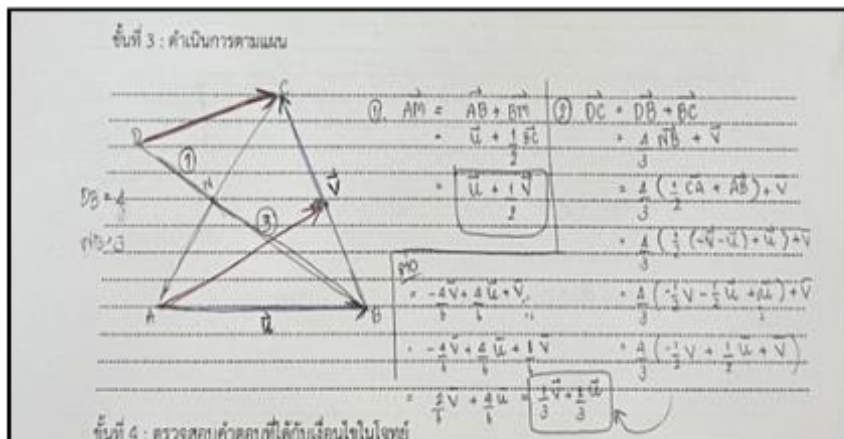 ขั้นที่ 3 : ดำเนินการตามแผน
C
D
①
N
DB = 4
NB = 3
③
V⃗
A
u⃗
B
①. AM⃗ = AB⃗ + BM⃗
= u⃗ + 1/2 BC⃗
= u⃗ + 1/2 v⃗
② DC⃗ = DB⃗ + BC⃗
= 4/3 NB⃗ + v⃗
= 4/3 (1/2 CA⃗ + AB⃗) + v⃗
= 4/3 (1/2 (-v⃗ - u⃗) + u⃗) + v⃗
= 4/3 (-1/2 v - 1/2 u⃗ + u⃗) + v⃗
= 4/3 (-1/2 v + 1/2 u⃗ + v⃗)
ต่อ
= -4/6 v⃗ + 4/6 u⃗ + v⃗
= -4/6 v⃗ + 4/6 u⃗ + 6/6 v⃗
= 2/6 v⃗ + 4/6 u⃗ =
ขั้นที่ 4 : ตรวจสอบคำตอบที่ได้กับเงื่อนไขในโจทย์